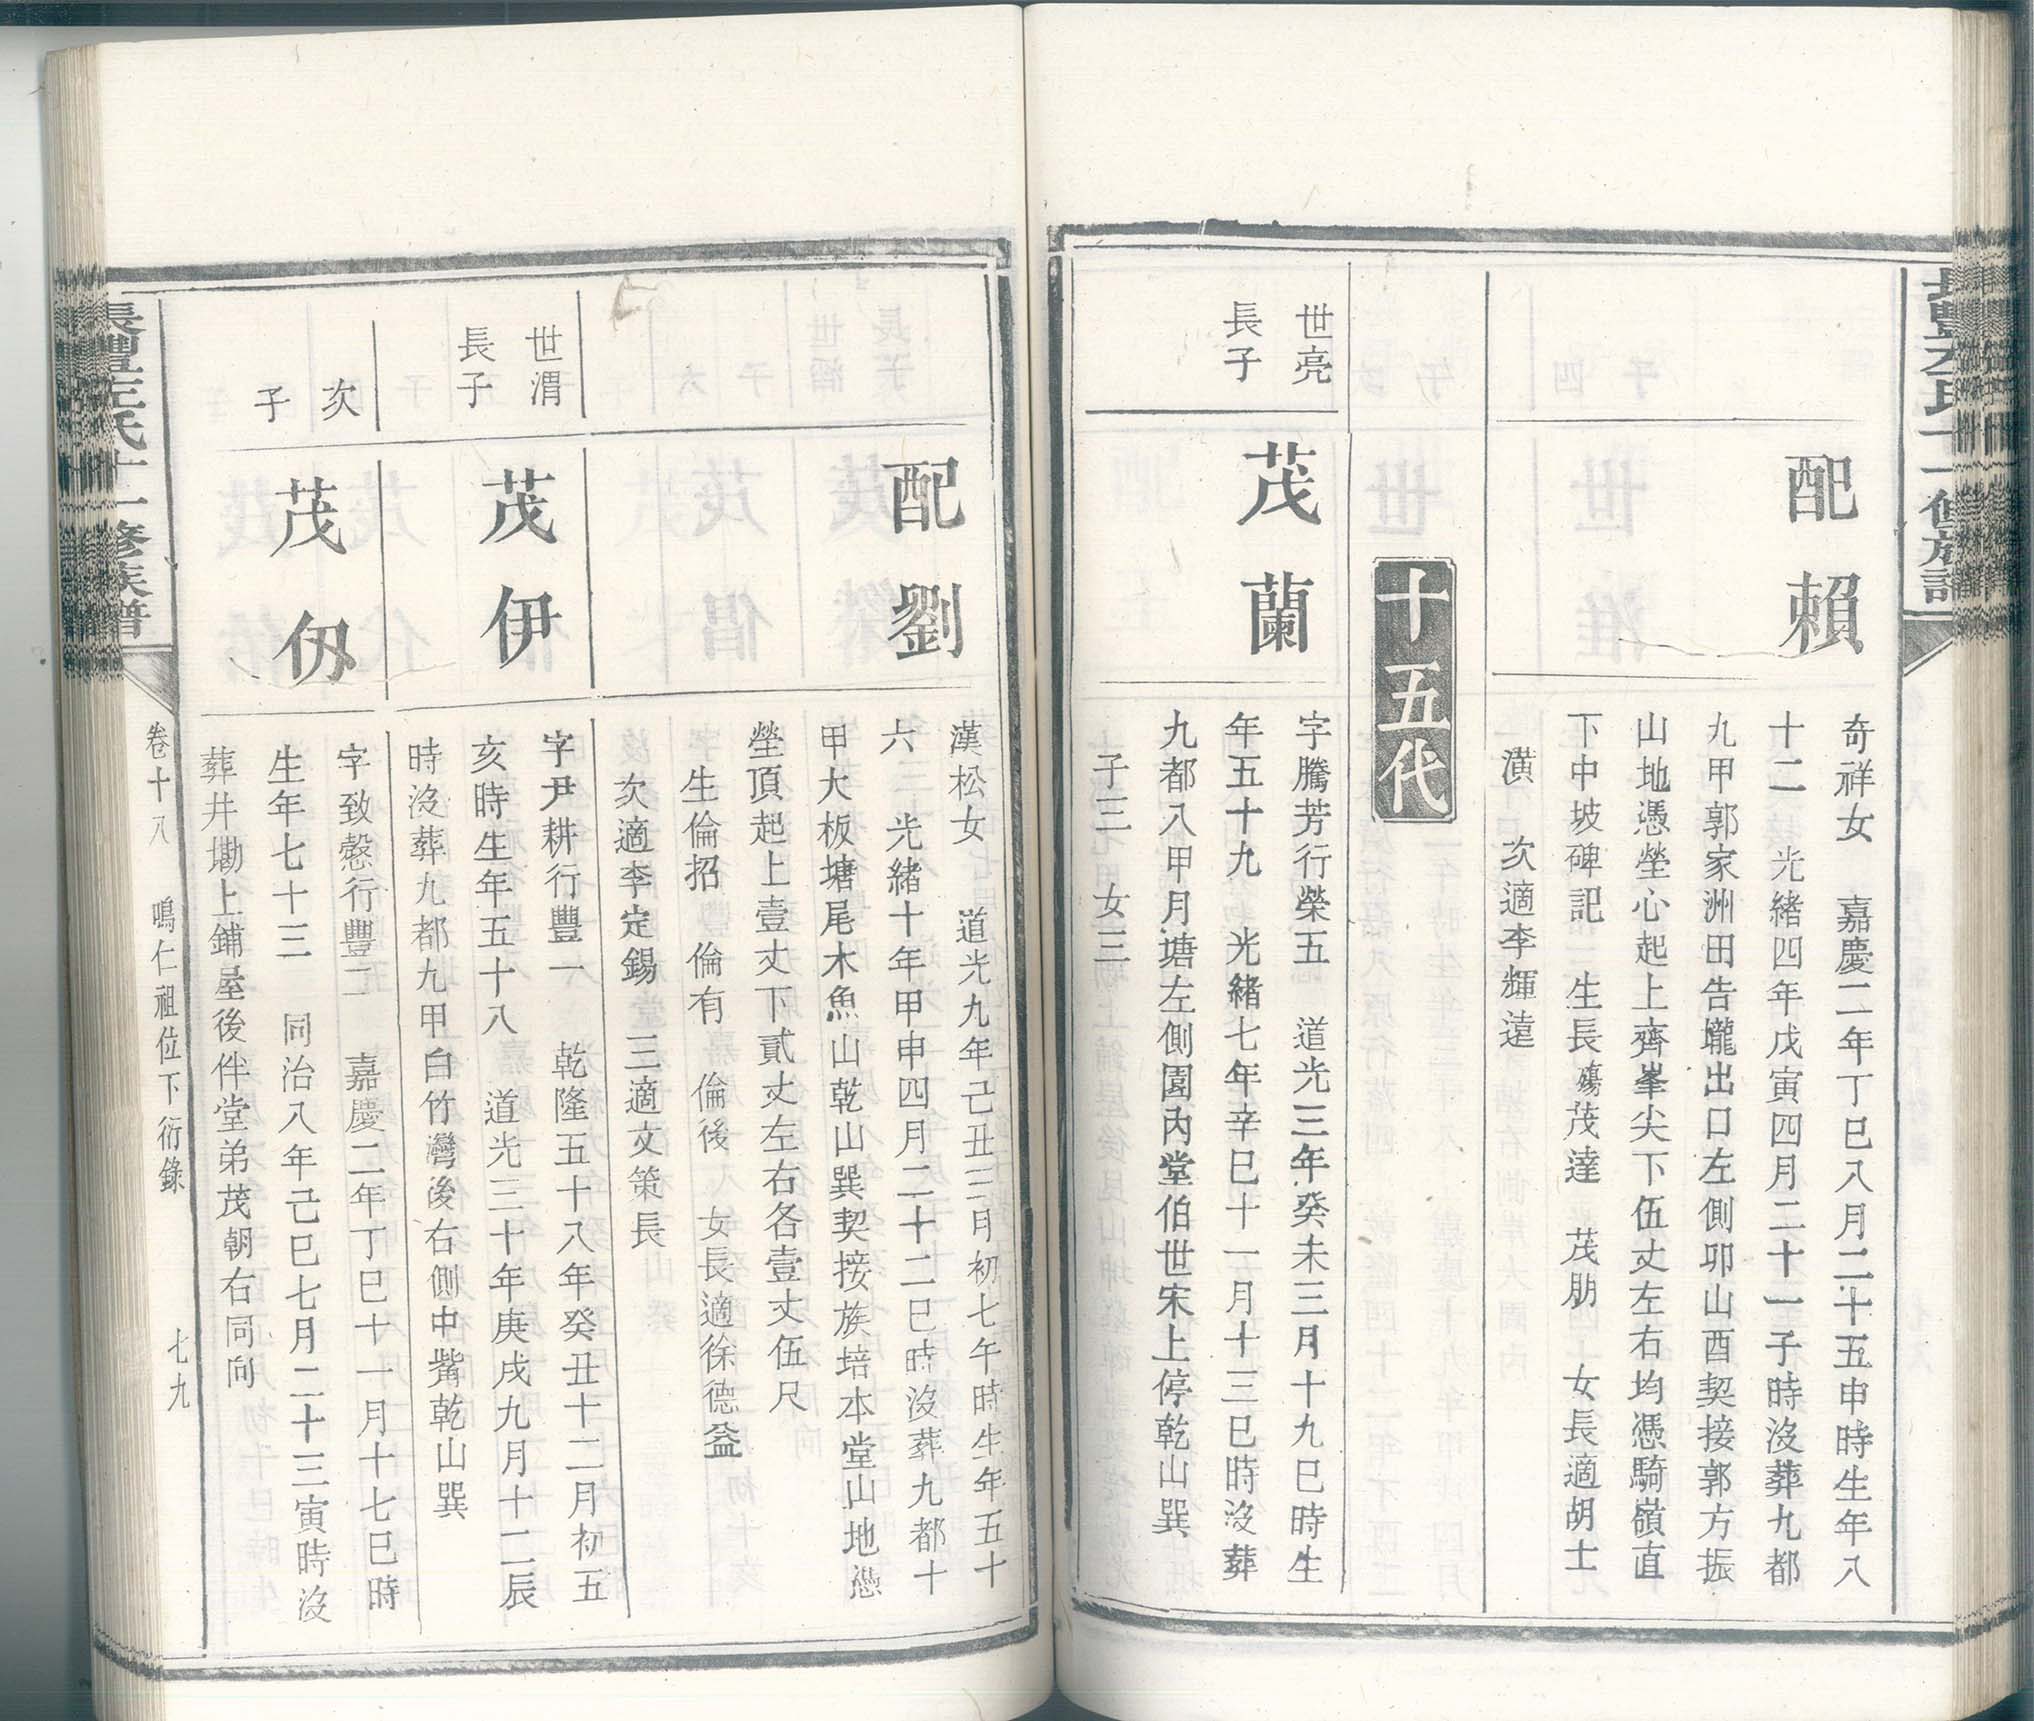 配賴
奇祥女　嘉慶二年丁巳八月二十五申時生年八
十二　光緒四年戊寅四月二十一子時沒葬九都
九甲郭家洲田告壠出口左側卯山酉契接郭方振
山地憑塋心起上齊峯尖下伍丈左右均憑騎嶺直
下中坡碑記　生長殤茂達　茂朋　女長適胡士
潢　次適李輝遠
十五代
世亮
長子
茂蘭
字騰芳行榮五　道光三年癸未三月十九巳時生
年五十九　光緒七年辛巳十一月十三巳時沒葬
九都八甲月塘左側園內堂伯世宋上停乾山巽
子三　女三
配劉
漢松女　道光九年己丑三月初七午時生年五十
六　光緒十年甲申四月二十二巳時沒葬九都十
甲大板塘尾木魚山乾山巽契接族培本堂山地憑
塋頂起上壹丈下貳丈左右各壹丈伍尺
生倫招　倫有　倫後　女長適徐德益
次適李定錫　三適文策長
世渭
長子
茂伊
字尹耕行豐一　乾隆五十八年癸丑十二月初五
亥時生年五十八　道光三十年庚戌九月十二辰
時沒葬九都九甲白竹灣後右側中嘴乾山巽
次
子
茂仭
字致愨行豐二　嘉慶二年丁巳十一月十七巳時
生年七十三　同治八年己巳七月二十三寅時沒
葬井墈上鋪屋後伴堂弟茂朝右同向
左氏十一修族譜
卷十八　鳴仁祖位下衍錄　七九